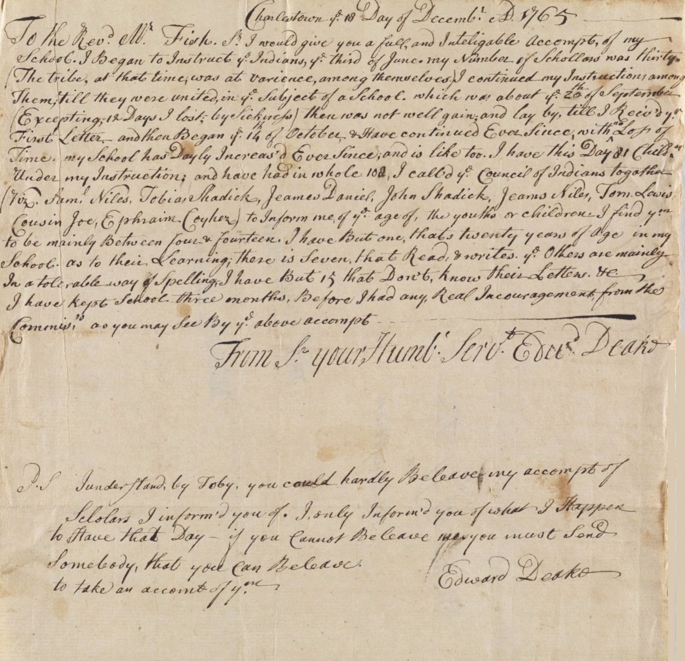 Charlestown yͤ 18 Day of Decembʳ AD 1765
To the Revᵈ Mʳ Fish. Sʳ I would give you a full, and Inteligable Accompt, of my
School. I Began to Instruct yͤ Indians, yͤ third of June. my Number of Schollars was thirty
(The tribe, at that time, was at varience, among themselves) I continued my Instructions among
Them, till they were united, in yͤ Subject of a School. which was about yͤ 25ᵗʰ of September
(Excepting, 12 Days I lost; by Sickness) then was not well again, and lay by, till I Receiv'd yͬ
First Letter, and then Began yͤ 14 of October, & Have continued Ever Since, with Loss of
Time. my School has Dayly Increas'd Ever Since, and is like too. I have this Day 81 Childⁿ
Under my Instruction; and have had in whole 102, I call'd yͤ Council of Indians togather
(Viz. Samˡ Niles, Tobias Shadick, Jeames Daniel, John Shadick, Jeams Niles, Tom Lewis,
Cousin Joe, Ephraim Coyhez) to Inform me, of yͤ age of, the youths or children. I find yᵐ
to be mainly Between four & fourteen. I have But one, thats twenty years of Age in my
School. as to their Learning, there is Seven, that Read, & writes. yͤ Others are mainly
In a tolerable way of Spelling, I have But 15 that Don't, know their Letters. &c
I have kept School three months, Before I had any, Real Incouragement, from the
Commisʳˢ as you may See By yͤ above accompt
From Sʳ your Humbˡ Servᵗ Edwᵈ Deake
P.S I understand, by Toby. you could hardly Beleave, my accompt of
Scholars I inform'd you of. I, only Inform'd you of what I Happen
to Have that Day – if you Cannot Beleave me, you must Send
Somebody, that you Can Beleave
to take an accomt of yᵐ
Edward Deake